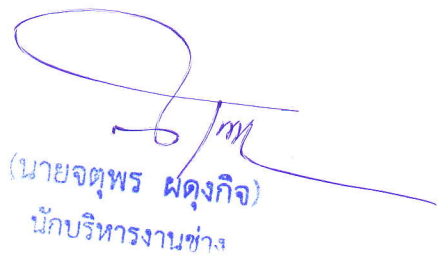 (นายจตุพร ผดุงกิจ)
นักบริหารงานช่าง